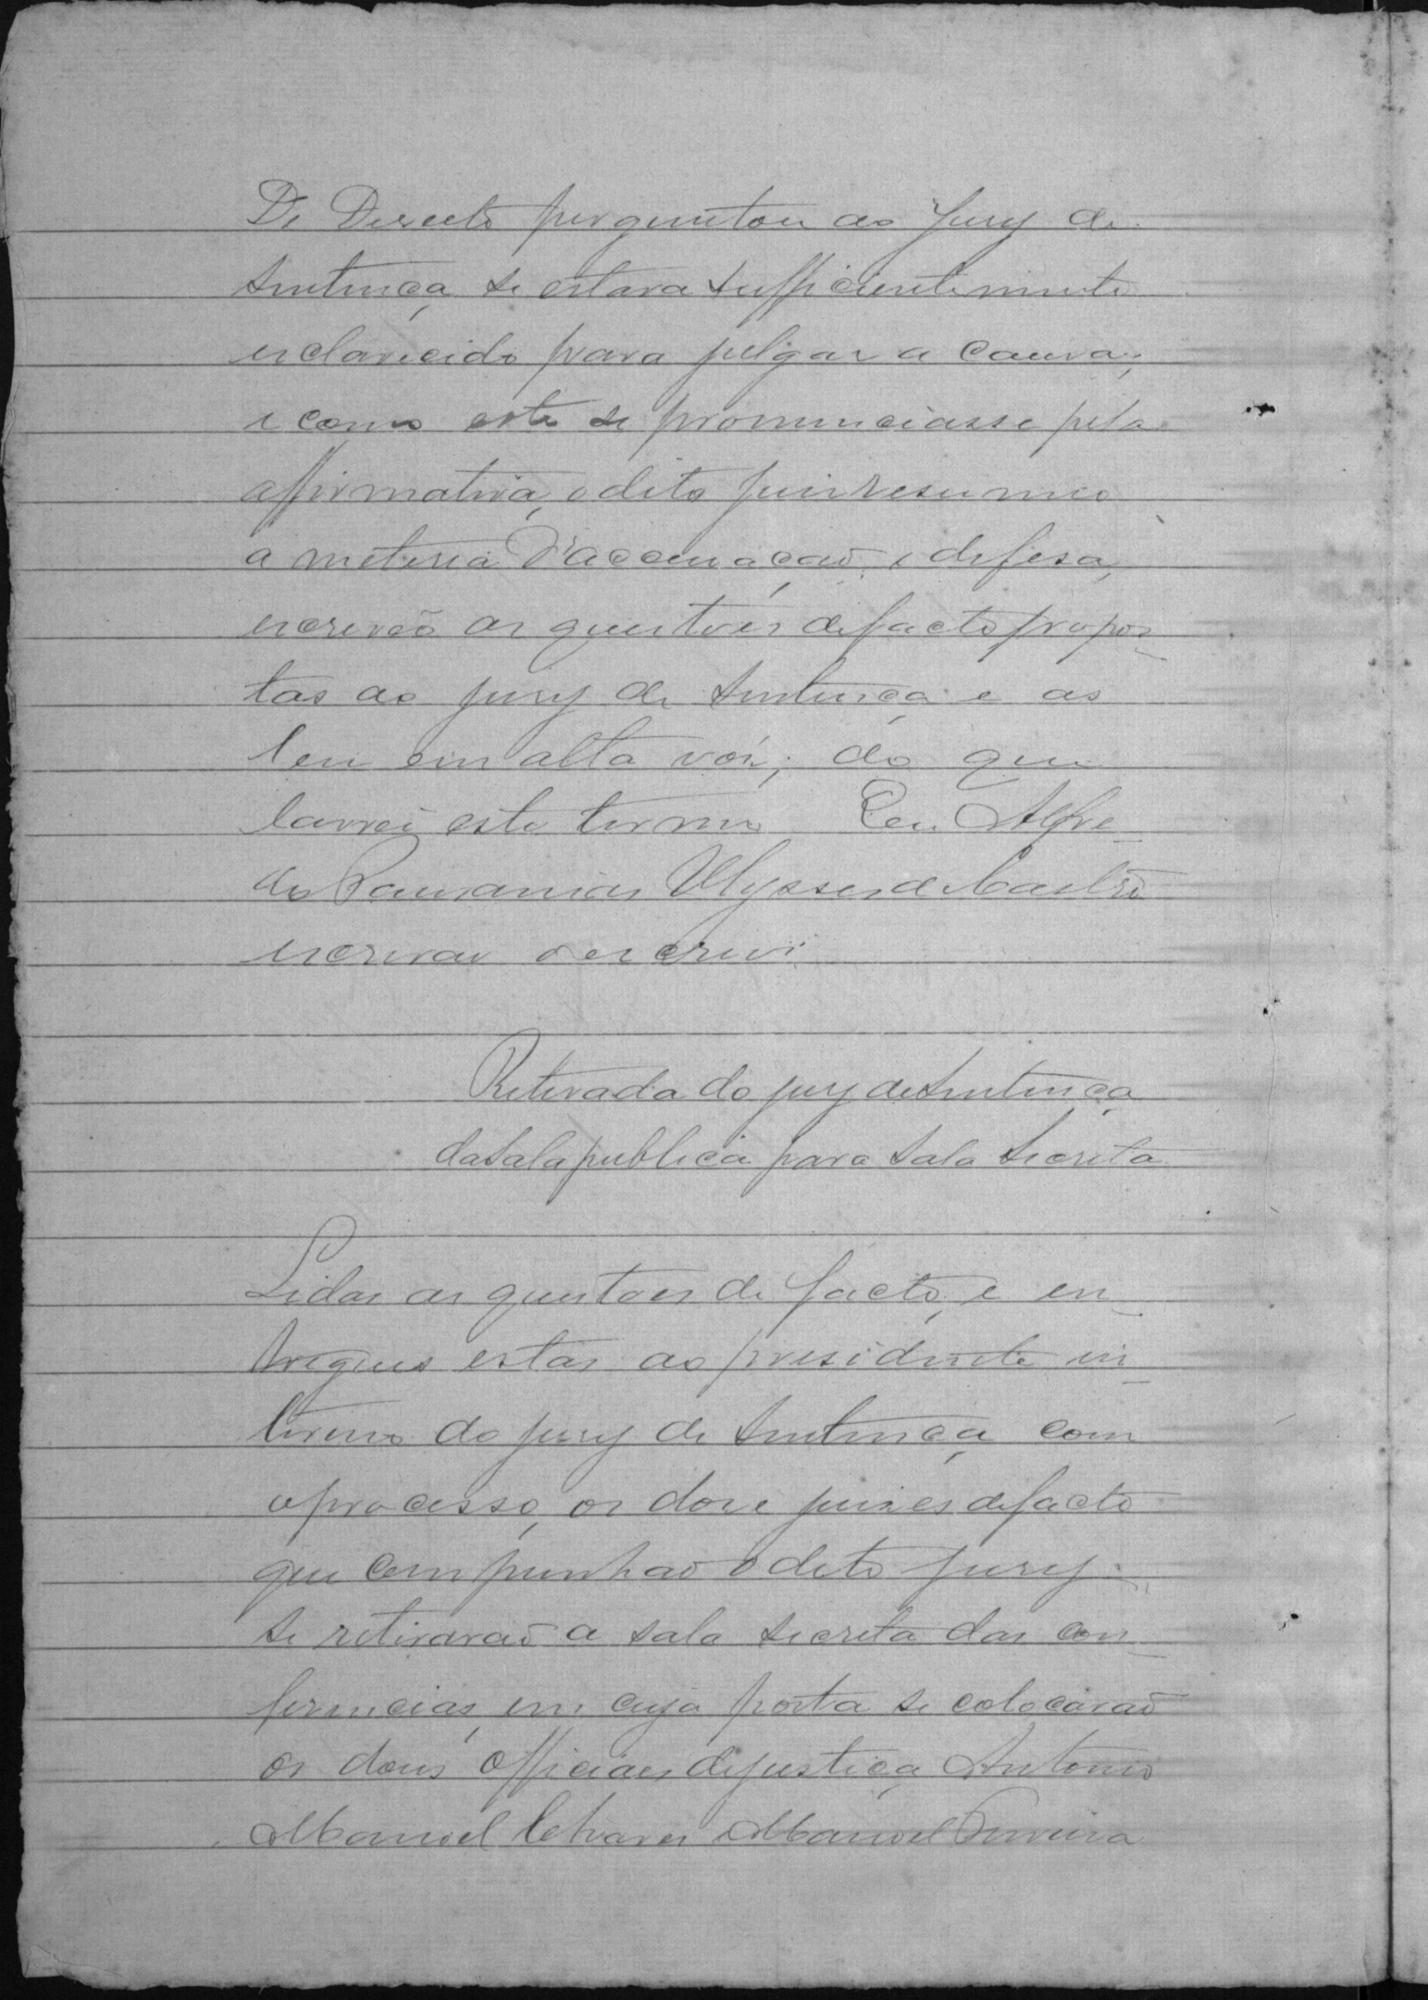 De Direito perguntou ao Jury de
Sentença se estava sufficientemente
esclarecido para julgar a causa;
e como este se pronunciasse pela
affirmativa, o dito juiz resumio
a materia d'accusação, e defesa,
escreveo as questões de facto propos_
tas ao jury de Sentença e as
leu em alta vóz; do que
lavrei este termo Eu Alfre_
do Pausanias Ulysses de Castro
escrivão o escrevi
Retirada do jury de Sentença
da Sala publica para Sala Secreta
Lidas as questões de facto, e en_
tregues estas ao presidente in_
terino do jury de Sentença com
o processo, os doze juizes de facto
que compunhão o dito jury
se retirarão a sala secreta das con_
ferencias, em cuja porta se colocarão
os dous officiaes de justiça Antonio
Manoel e Manoel Pereira